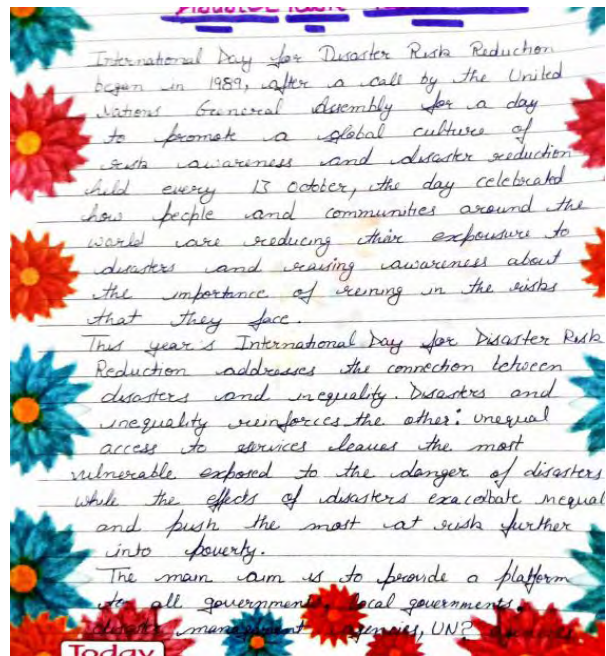 International Day for Disaster Risk Reduction
began in 1989, after a call by the United
Nations General Assembly for a day
to promote a global culture of
risk awareness and disaster reduction
held every 13 October, the day celebrated
how people and communities around the
world are reducing their expousure to
disasters and raising awareness about
the importance of reining in the risks
that they face.
This year's International Day for Disaster Risk
Reduction addresses the connection between
disasters and inequality. Disasters and
inequality reinforces the other: unequal
access to services leaves the most
vulnerable exposed to the danger of disasters
while the effects of disasters exacerbate inequal
and push the most at risk further
into poverty.
The main aim is to provide a platform
to all governments, local governments,
disaster management agencies, UN? agencies
Today